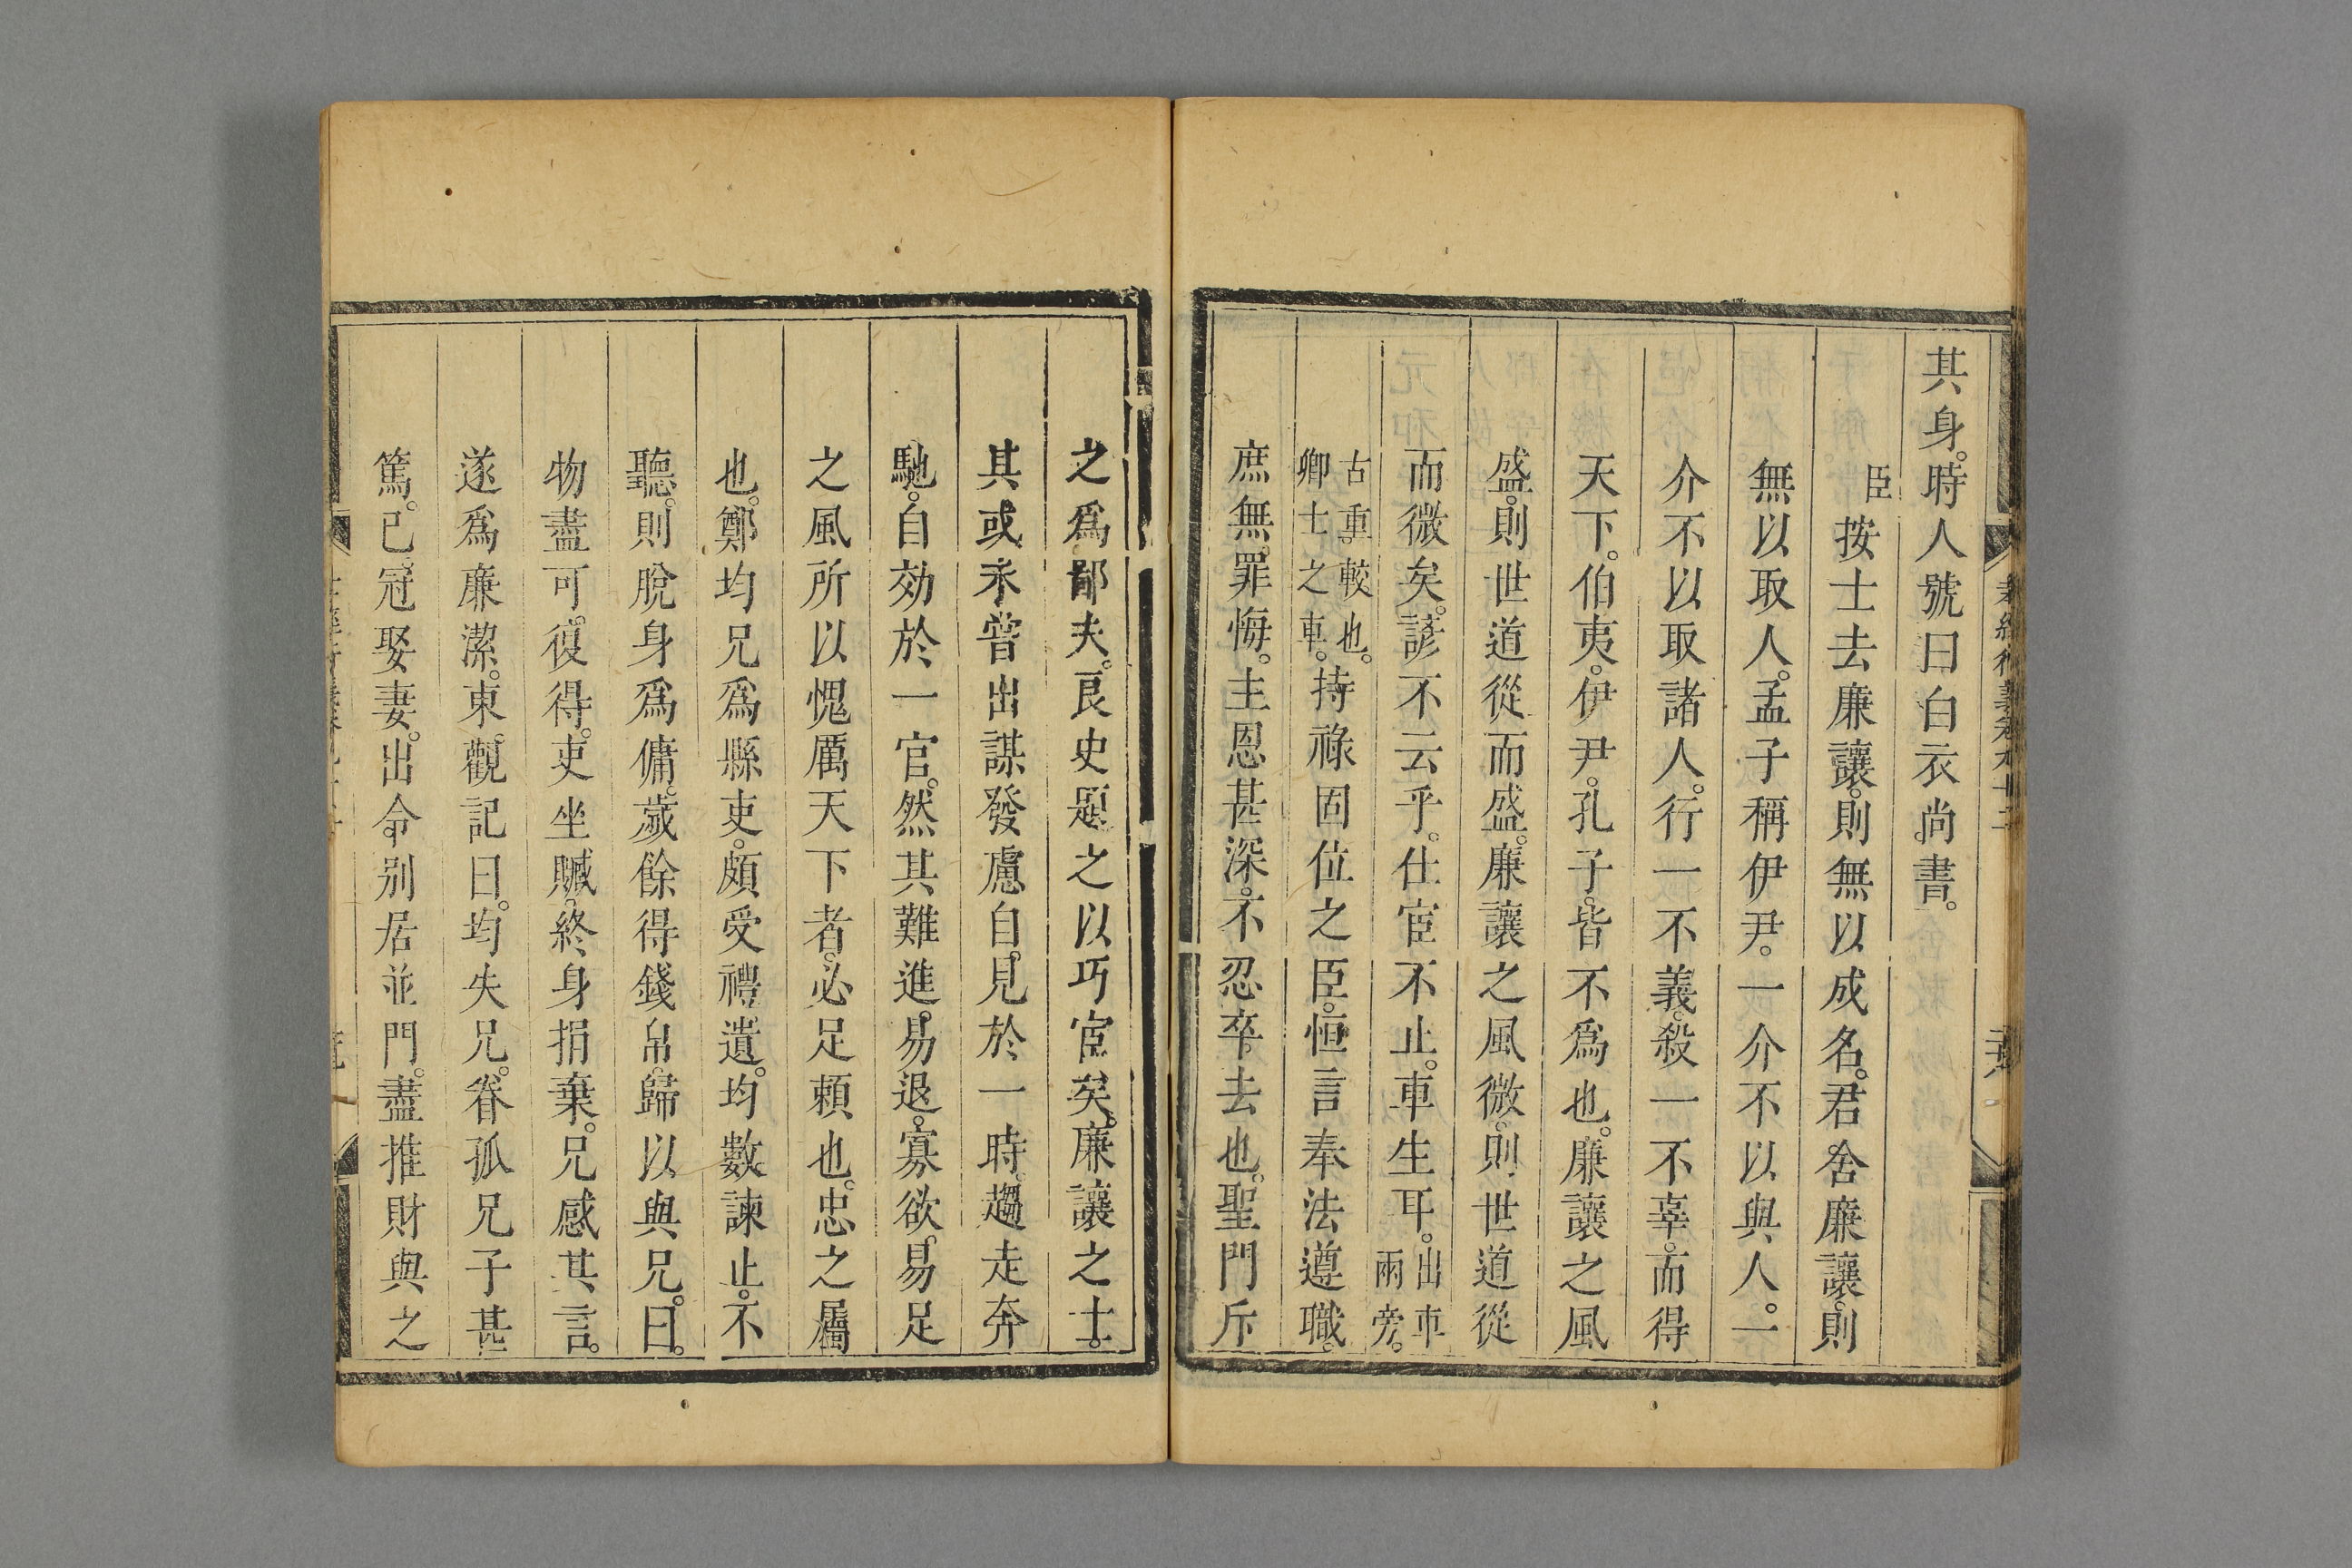 其身。時人號曰白衣尚書。
臣按士去廉讓。則無以成名。君舍廉讓。則
無以取人。孟子稱伊尹。一介不以與人。一
介不以取諸人。行一不義。殺一不辜。而得
天下。伯夷。伊尹。孔子。皆不爲也。廉讓之風
盛。則世道從而盛。廉讓之風微。則世道從
而微矣。諺不云乎。仕宦不止。車生耳。出車兩旁。
古重較也。卿士之車。持祿固位之臣。恒言奉法遵職。
庶無罪悔。主恩甚深。不忍卒去也。聖門斥
之爲鄙夫。良史題之以巧宦矣。廉讓之士。
其或未嘗出謀發慮自見於一時。趨走奔
馳。自効於一官。然其難進。易退。寡欲。易足
之風所以愧厲天下者。必足賴也。忠之屬
也。鄭均兄爲縣吏。頗受禮遺。均數諫止。不
聽。則脫身爲傭。歲餘得錢帛。歸以與兄。曰。
物盡可復得。吏坐贓。終身捐棄。兄感其言。
遂爲廉潔。東觀記曰。均失兄。眷孤兄子甚
篤。已冠娶妻。出令別居並門。盡推財與之